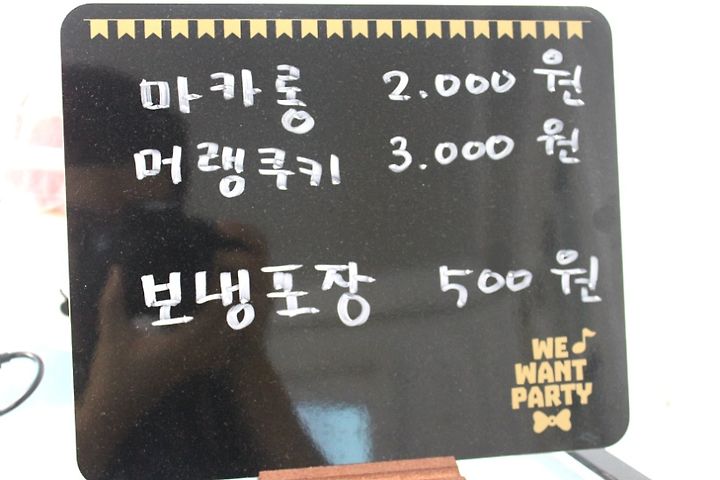 마카롱 2.000 원
머랭쿠키 3.000 원
보냉포장 500 원
WE
WANT
PARTY